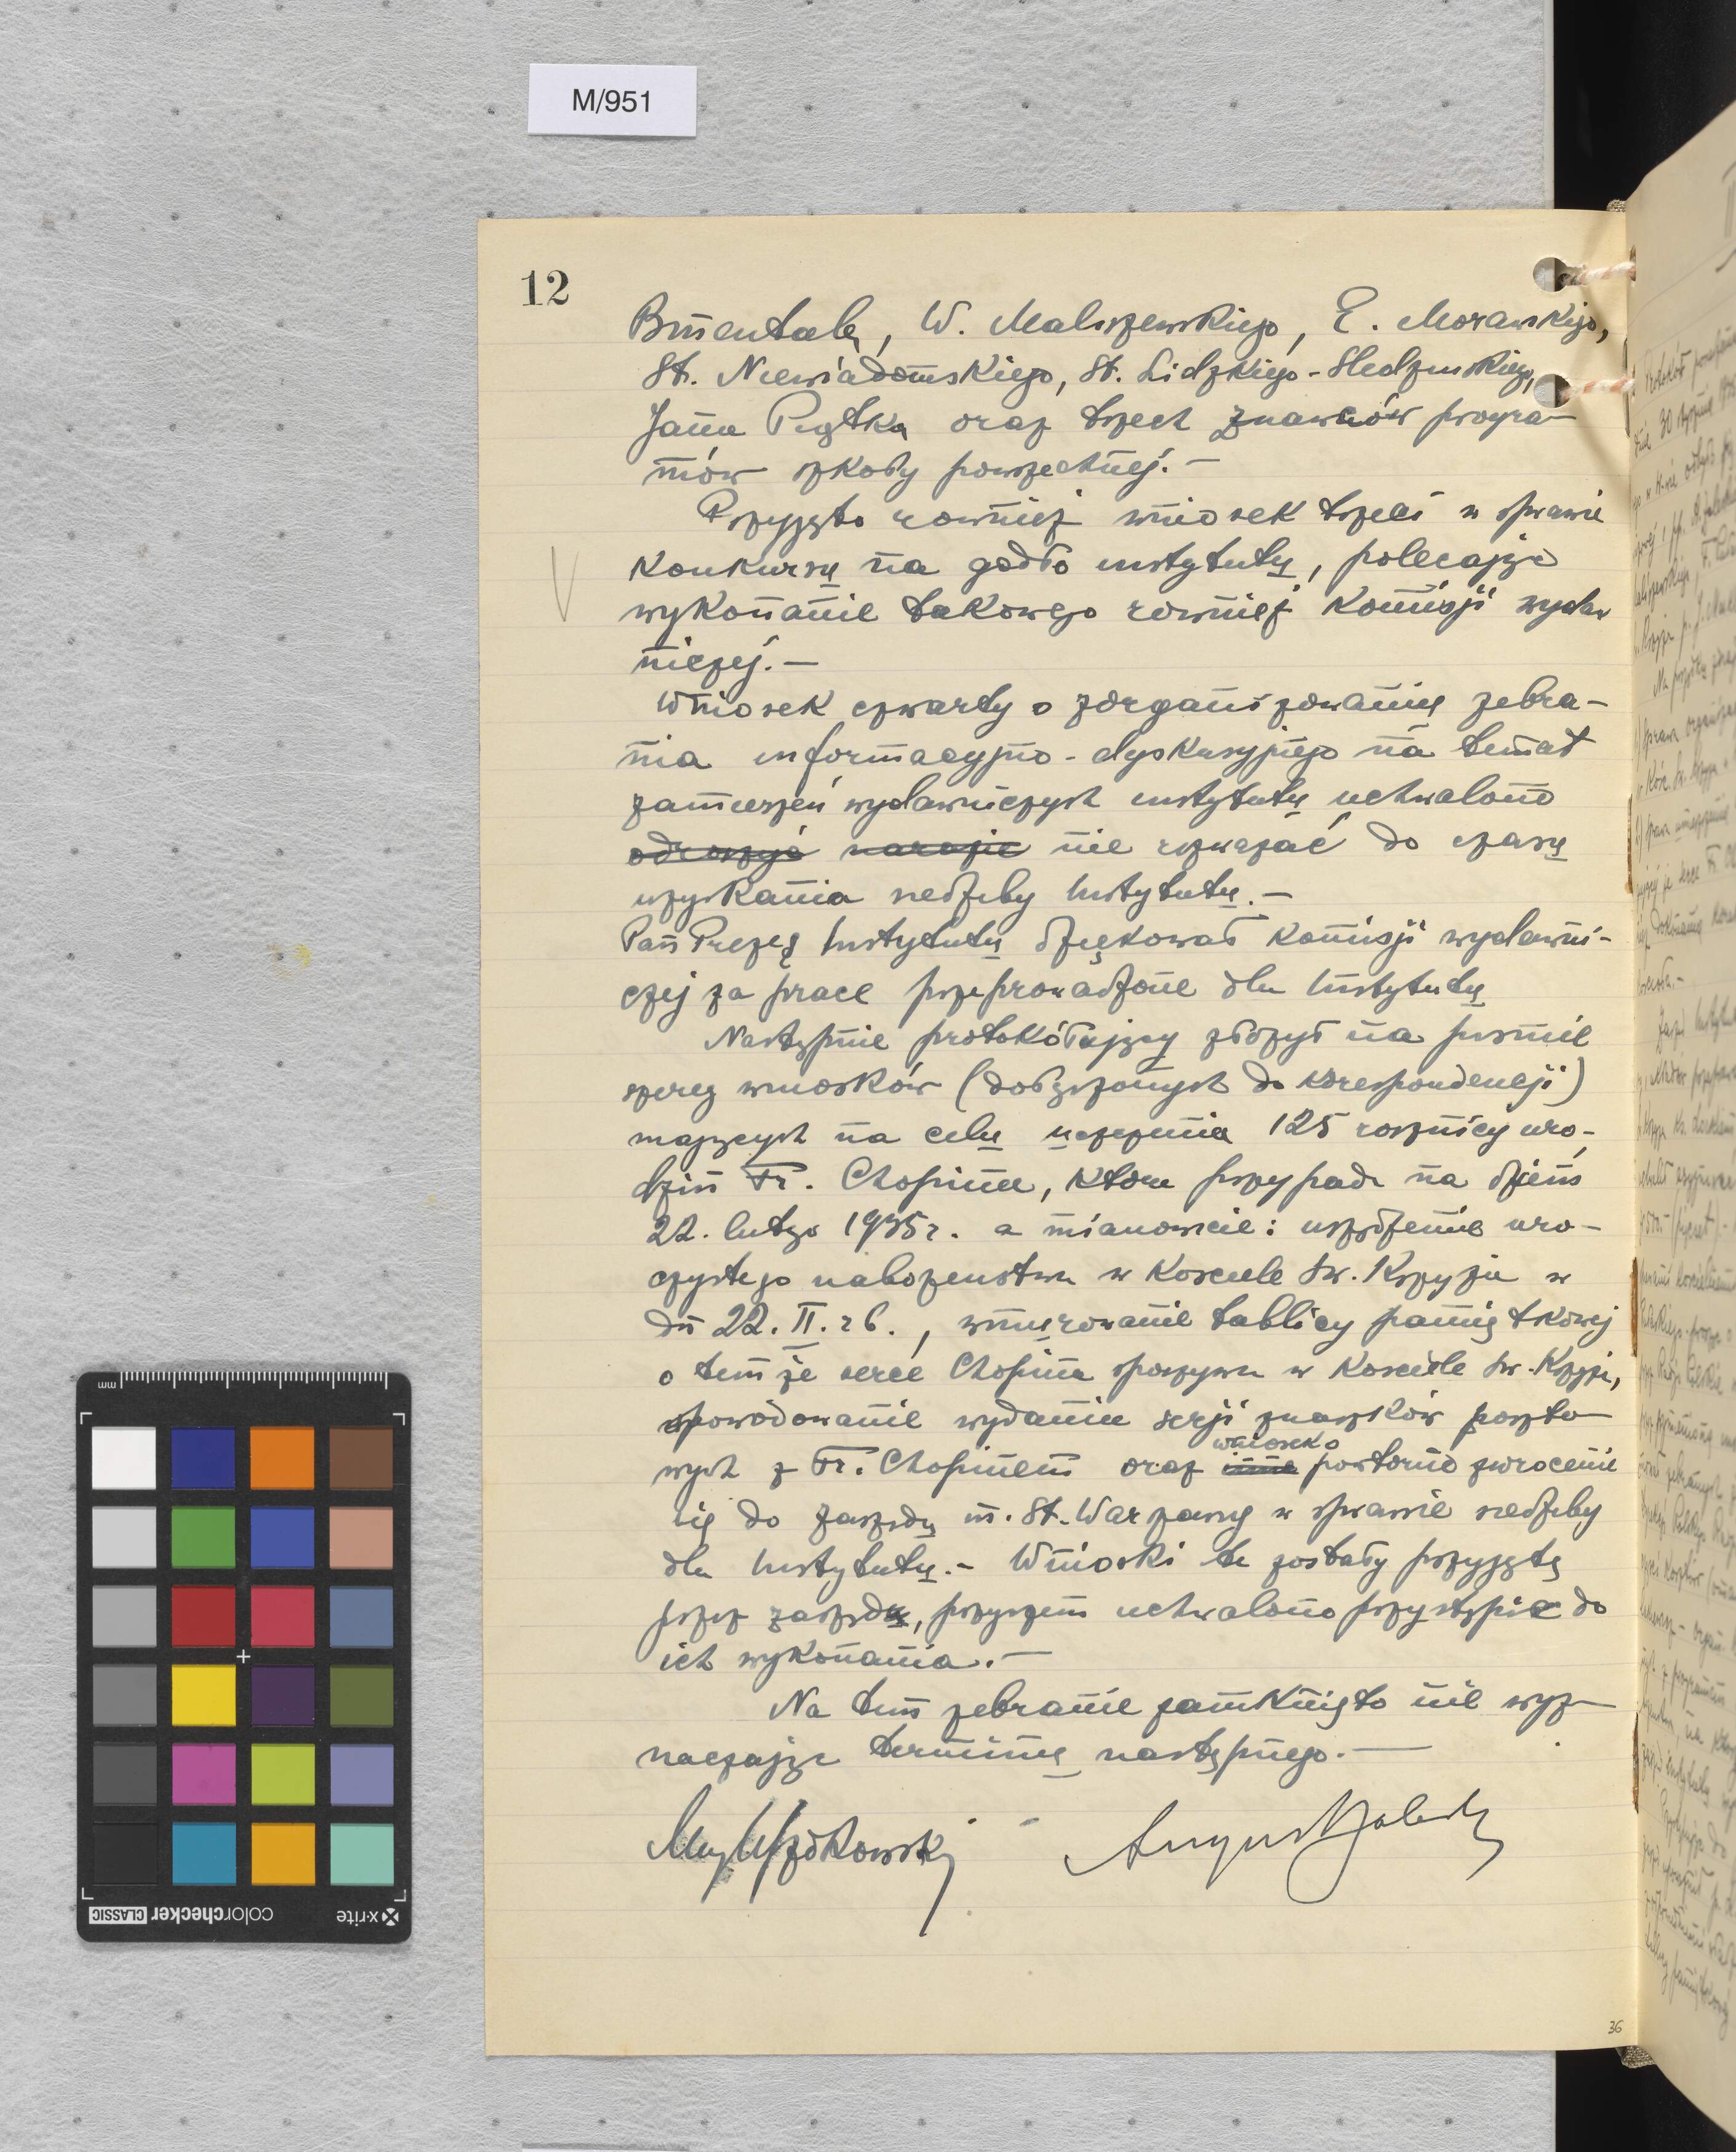 M/951
12
Bmentala, W. Maliszewskiego, E. Morawskiego,
St. Niewiadomskiego, St. Lidzkiego-Sledzinskiego,
Jana oraz trzech znawców progra-
mów szkoły powszechnej.-
Przyjęto rownież wniosek trzeci w sprawie
konkursu na godło instytutu, polecając
wykonanie takowego rowniez Komisji wydaw
niczej.-
Wniosek czwarty o zorganizowaniu zebra-
nia informacyjno-dyskusyjnego na temat
zamierzeń wydawniczych instytutu uchwalono
odroczyć narazie nie zwoływać do czasu
uzyskania siedziby Instytutu.-
Pan Prezes Instytutu dziękował Komisji wydawni-
czej za prace przeprowadzone dla Instytutu
Następnie protokółujący złożył na pismie
szereg wniosków (dołączonych do korespondencji)
mających na celu uczczenia 125 rocznicy uro-
dzin Fr. Chopina, która przypada na dzień
22. lutego 1935 r. a mianowicie: urządzenie uro-
czystego nabozenstwa w Kosciele Sw. Krzyza w
dń 22. II. r b., wmurowanie tablicy pamiątkowej
o tem że serce Chopina spoczywa w Kosciele Sw. Krzyza,
spowodowanie wydania serji znaczków poczto-
wniosek o
wych z Fr. Chopinem oraz inne powtorne zwrocenie
się do zarządu m. St. Warszawy w sprawie siedziby
dla Instytutu.- Wnioski te zostały przyjęte
przez zarząd, przyczem uchwalono przystąpić do
ich wykonania.-
Na tem zebranie zamknięto nie wyz-
naczając terminu następnego.-
36
mm
x-rite
colorchecker CLASSIC